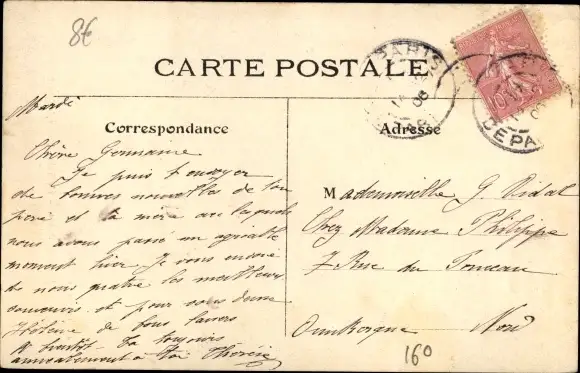 8€
CARTE POSTALE
PARIS
DEPA
10
Mardi
Correspondance
Adresse
Chère Germaine
Je puis t'envoyer
de bonnes nouvelles de ton
père et ta mère avec lesquels
nous avons passé un agréable
moment hier. Je vous envoie
de nous quatre les meilleurs
et pour
Hélène de bons
A bientôt. Ta toujours
à toi Thérèse
Mademoiselle G. Vidal
Chez Madame Philippe
7 Rue du
Dunkerque Nord
160